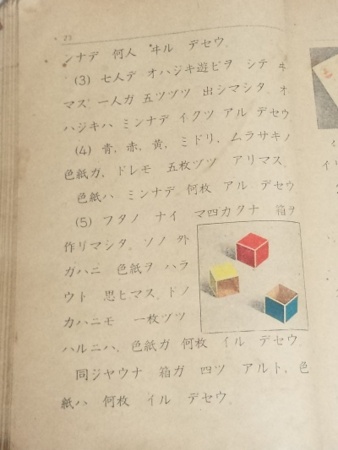 23
ンナデ 何人 ヰル デセウ。
(3) 七人デ オハジキ遊ビヲ シテ ヰ
マス。一人ガ 五ツヅツ 出シマシタ。オ
ハジキハ ミンナデ イクツ アル デセウ。
(4) 青、赤、黄、ミドリ、ムラサキノ
色紙ガ、ドレモ 五枚ヅツ アリマス。
色紙ハ ミンナデ 何枚 アル デセウ。
(5) フタノ ナイ マ四カクナ 箱ヲ
作リマシタ。ソノ 外
ガハニ 色紙ヲ ハラ
ウト 思ヒマス。ドノ
カハニモ 一枚ヅツ
ハルニハ、色紙ガ 何枚 イル デセウ。
同ジヤウナ 箱ガ 四ツ アルト、色
紙ハ 何枚 イル デセウ。